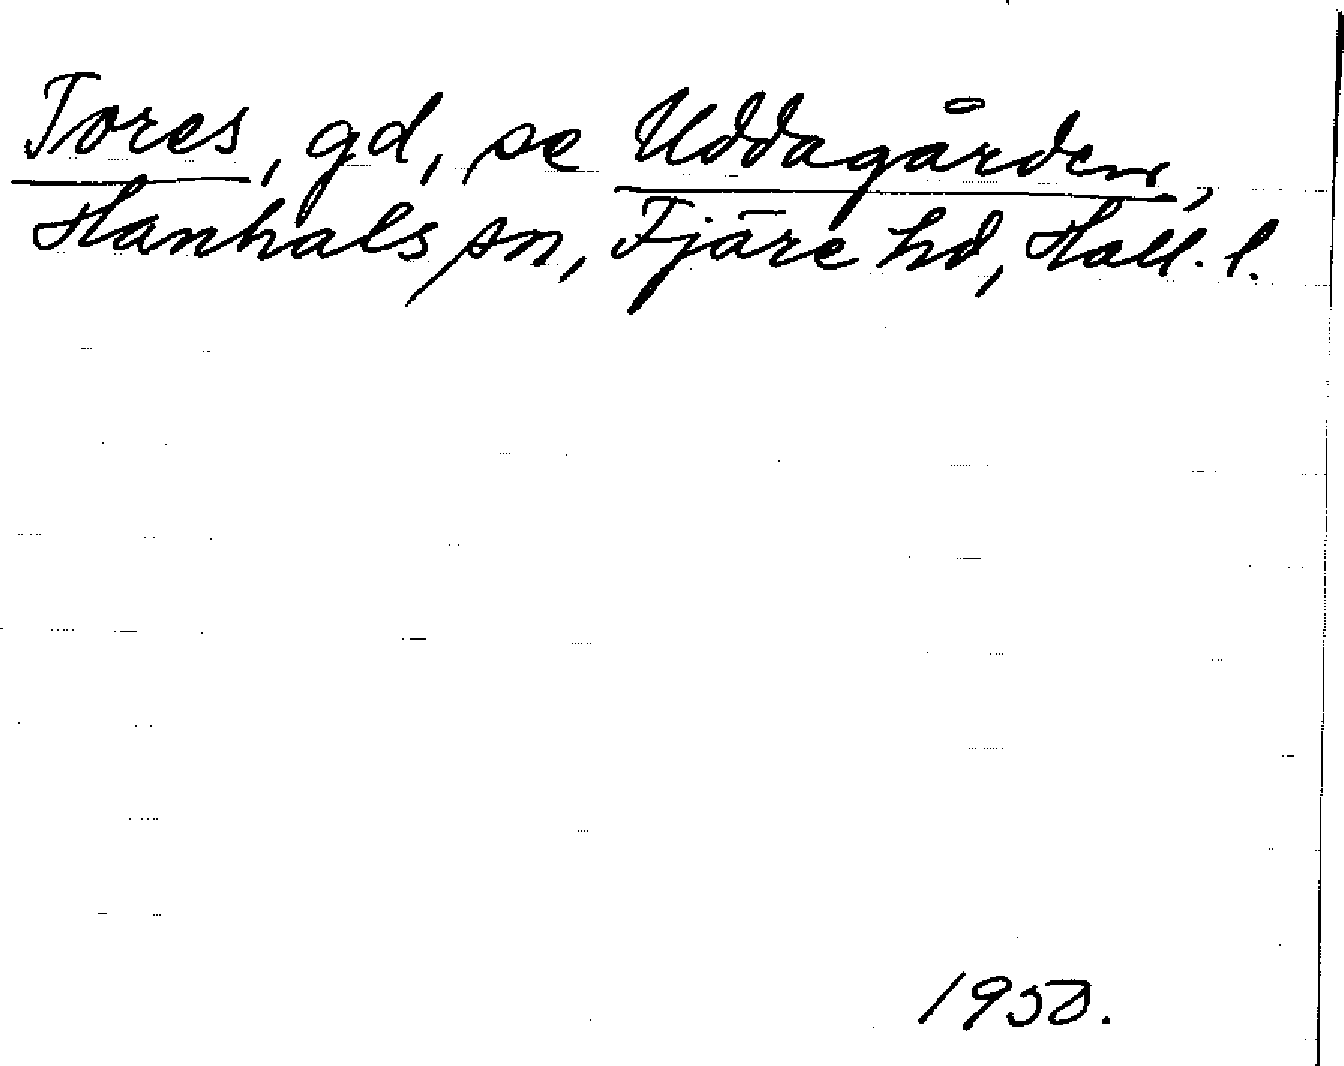 Tores, gd, se Uddagården,
Hanhals sn, Fjäre hd, Hall. l.
1950.